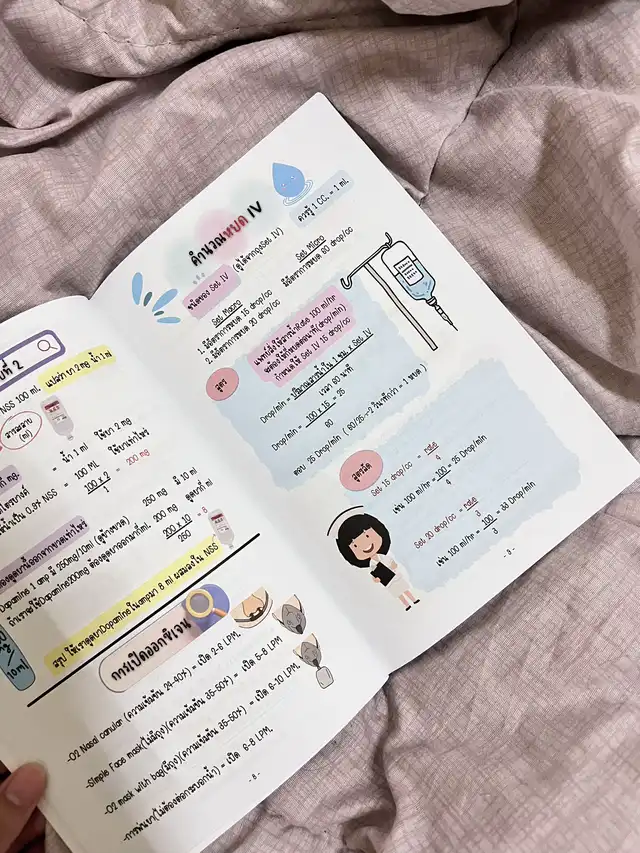 ยที่ 2
NSS 100 ml. แปลว่า ยา 2 mg น้ำ 1 ml
สารละลาย
(ml)
= น้ำ 1 ml ใช้ยา 2 mg
0.9% NSS = 100 ML ใช้ยาเท่าไร่
100 x 2 = 200 mg
1
Dopamine 1 amp มี 250mg/10ml (ดูข้างขวด) 250 mg มี 10 ml
ถ้าเราใช้Dopamine200mg ต้องดูดยาออกมากี่ml. 200 mg ดูดมากี่ ml
200 x 10 = 8
250
สรุป ให้เราดูดยาDopamineในampมา 8 ml ผสมลงใน NSS
10ml
การเปิดออกซิเจน
-O2 Nasal canular (ความเข้มข้น 24-40%) = เปิด 2-6 LPM.
-Simple Face mask(ไม่มีถุง)(ความเข้มข้น 35-50%) = เปิด 5-8 LPM
-O2 mask with bag(มีถุง)(ความเข้มข้น 35-60%) = เปิด 6-10 LPM.
-การพ่นยา(ไม่ต้องต่อกระบอกน้ำ) = เปิด 6-8 LPM.
-8-
คำนวณหยด IV
ควรรู้ 1 CC. = 1 ml.
ชนิดของ Set IV (ดูได้จากถุงSet IV)
Set Macro
1. มีอัตราการหยด 15 drop/cc
2. มีอัตราการหยด 20 drop/cc
Set Micro
มีอัตราการหยด 60 drop/cc
แพทย์สั่งให้สารน้ำRate 100 ml/hr
จะต้องให้กี่หยดต่อนาที(drop/min)
กำหนดให้ Set IV 15 drop/cc
สูตร
Drop/min = ปริมาณสารน้ำใน 1 ชม x Set IV
เวลา 60 นาที
Drop/min = 100 x 15 = 25
60
ตอบ 25 Drop/min ( 60/25-->2 วินาทีกว่า = 1 หยด )
สูตรลัด
Set 15 drop/cc = rate
4
เช่น 100 ml/hr = 100 = 25 Drop/min
4
Set 20 drop/cc = rate
3
เช่น 100 ml/hr = 100 = 33 Drop/min
3
-9-